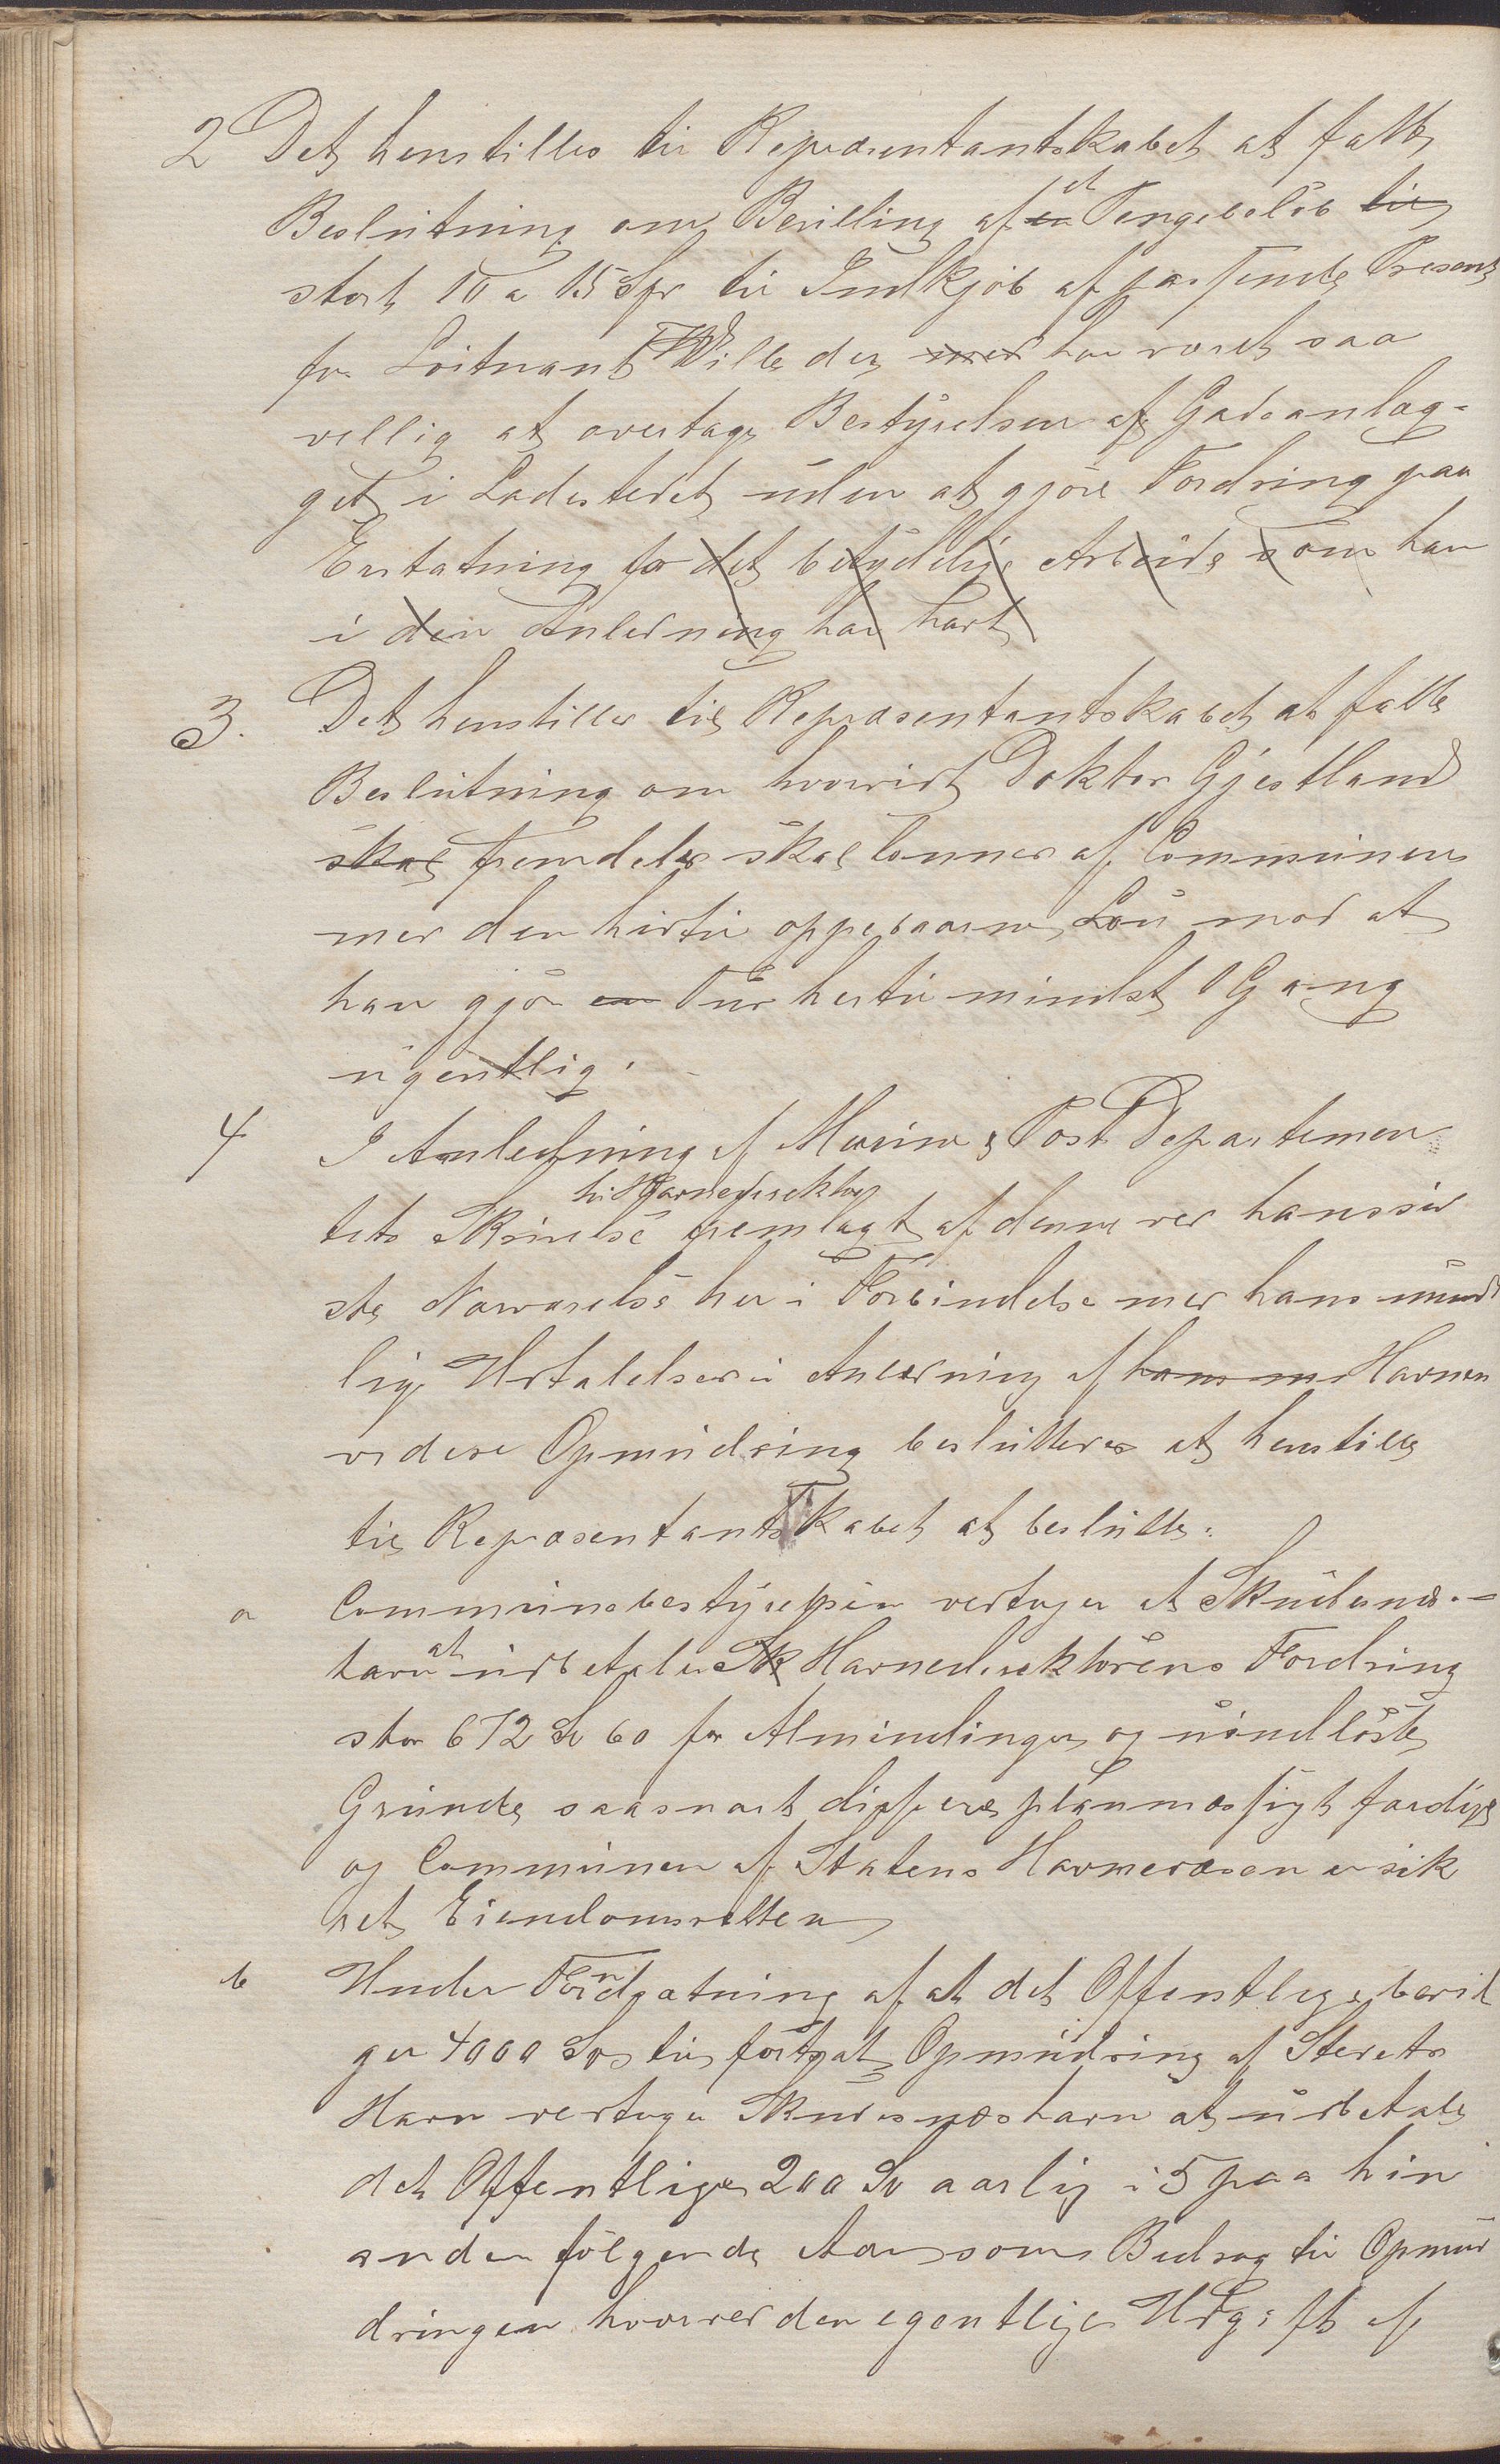 2 Det henstilles til Repræsentantskabet at fatte
Beslutning om Bevilling af et Pengebeløb til
stort 10 a 15 Spr til Indkjøb af passende Present
for Loitnant Wille der med har været saa
vellig at overtage Bestyrelsen af Gadeanlæg-
get i Ladestedet uden at gjøre Fordring paa
Erstatning for det betydelige Arbeide som han
i den Anledning har havt
3. Det henstilles til Repræsentantskabet at fatte
Beslutning om hvorvidt Doktor Gjestland
skal fremdeles skal lønnes af Communen
med den hidtil oppebaarne Løn mod at
han gjør en Tur hertil mindst 1 Gang
ugentlig.
4 I Anledning af Marine & Post Departemen
til Havnedirektør
tets Skrivelse fremlagt af denne ved hans sid
ste Nærværelse her i Forbindelse med hans mundt
lige Udtalelser i Anledning af hans m Havnen
videre Opmudring besluttedes at henstille
til Repræsentantskabet at beslutte:
a Communebestyrelsen vedtager at Skudesnæs-
havn at udbetaler Sk Havnedirektørens Fordring
stor 672 Sp 60 for Almindingen og uindløste
Grunde saasnart disse ere planmæssigt færdige
og Communen af Statens Havnevæsen er sik
ret Eiendomsretten
b Under Forudsætning af at det Offentlige bevil
ger 4000 Spd til fortsat Opmudring af Stedets
Havn vedtager Skudesnæshavn at udbetale
det Offentlige 200 Sp aarlig i 5 paa hin
anden følgende Aar som Bidrag til Opmud
dringen hvorved den egentlige Udgift af